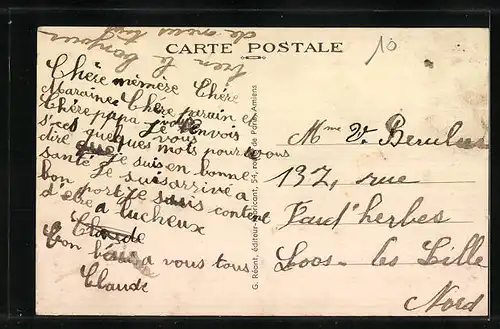 CARTE POSTALE
10
bien le bonjour
de nous tous
Chère mémère Chère
Maraine Chère parain et
Chère papa Je vous envois
s'ces quelques mots pour vous
dire que Je suis en bonne
santé Je suis arrivé a
bon port Je suis content
d'etre a Lucheux
Claude
bon baisé a vous tous
Claude
G. Réant, éditeur-fabricant, 54, route de Paris, Amiens
Mme V.
137, rue
Faud'herbes
Loos-les Lille
Nord